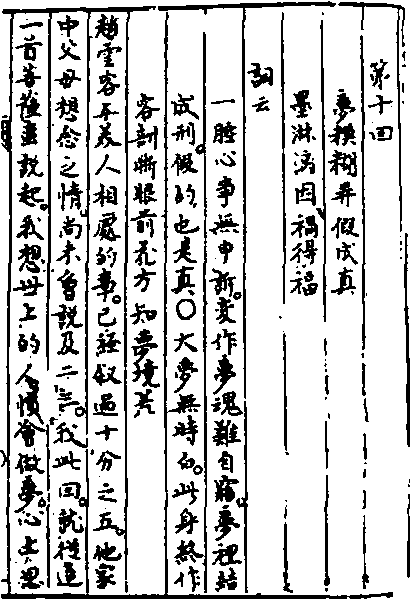 第十回
夢模糊弄假成真
墨淋漓因禍得福
詞云
一腔心事無申訴。変作夢魂難自寤。夢裡結
成刑。假的也是真〇大夢無時白。此身終作
客剖斷眼前花方知夢境差
趙雲客與美人相處的事。已經叙過十分之五。他家
中父母想念之情。尚未曾說及二三。我此回。就從這
一首菩薩蠻說起。我想世上的人。慣會做夢。心上思